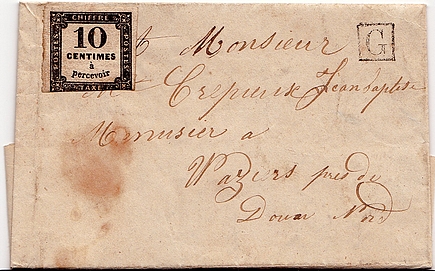 CHIFFRE
POSTES
10
CENTIMES
à
percevoir
POSTES
TAXE
G
A Monsieur
Crepieux Jean baptiste
Menusier a
Waziers pres de
Douai Nord